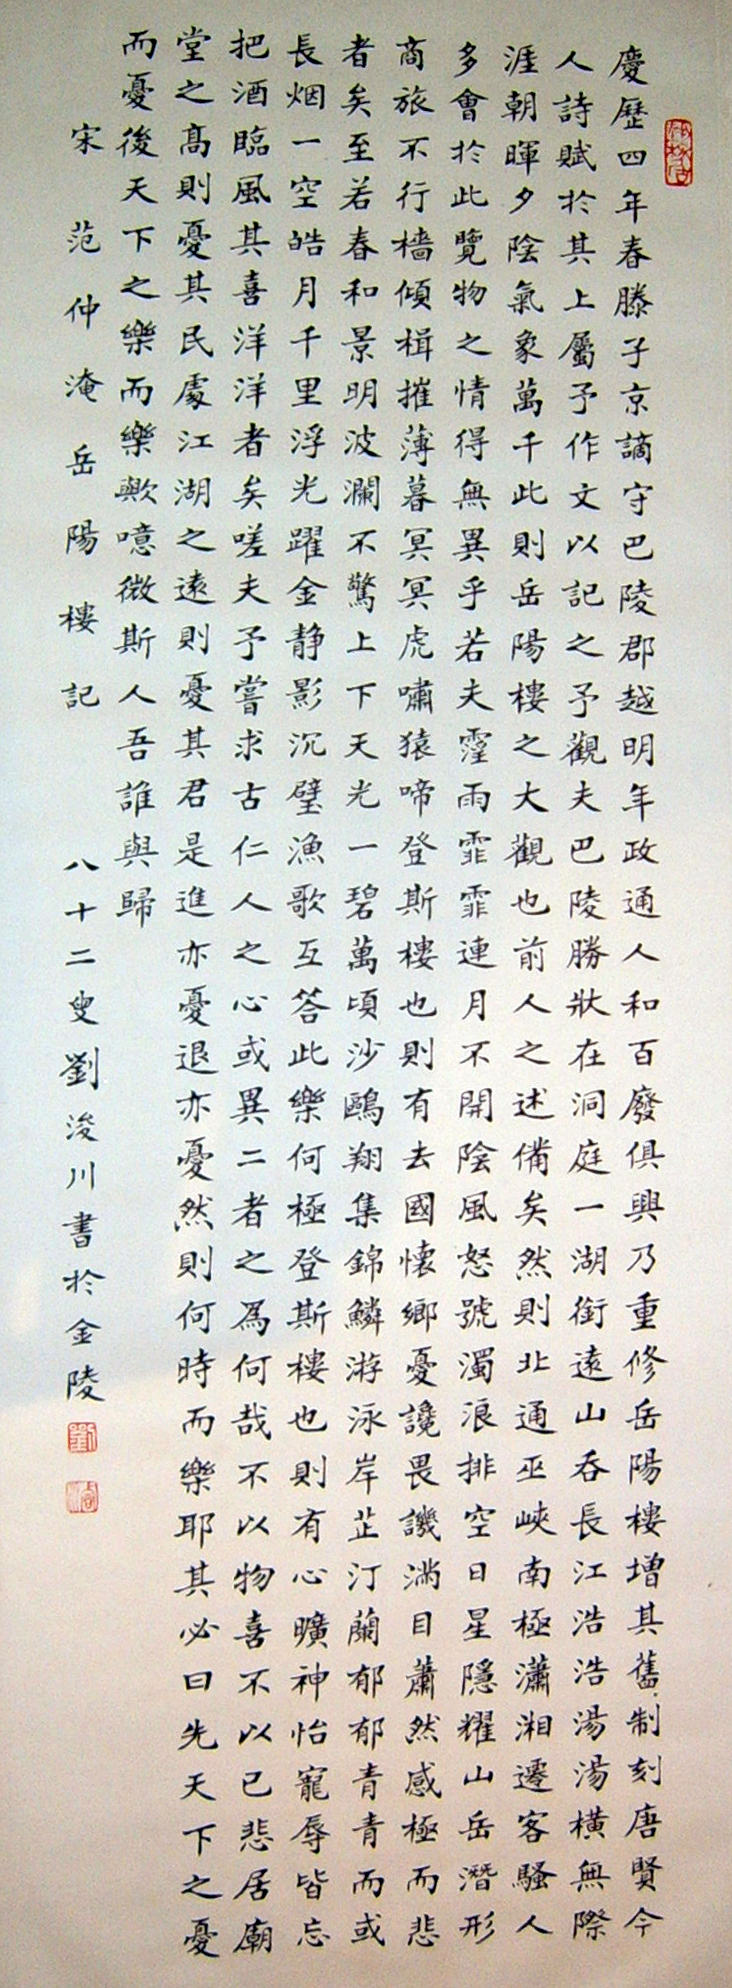 慶歷四年春滕子京謫守巴陵郡越明年政通人和百廢俱興乃重修岳陽樓增其舊制刻唐賢今
人詩賦於其上屬予作文以記之予觀夫巴陵勝狀在洞庭一湖銜遠山吞長江浩浩湯湯橫無際
涯朝暉夕陰氣象萬千此則岳陽樓之大觀也前人之述備矣然則北通巫峽南極瀟湘遷客騷人
多會於此覽物之情得無異乎若夫霪雨霏霏連月不開陰風怒號濁浪排空日星隱耀山岳潛形
商旅不行檣傾楫摧薄暮冥冥虎嘯猿啼登斯樓也則有去國懷鄉憂讒畏譏滿目蕭然感極而悲
者矣至若春和景明波瀾不驚上下天光一碧萬頃沙鷗翔集錦鱗游泳岸芷汀蘭郁郁青青而或
長烟一空皓月千里浮光躍金静影沉璧漁歌互答此樂何極登斯樓也則有心曠神怡寵辱皆忘
把酒臨風其喜洋洋者矣嗟夫予嘗求古仁人之心或異二者之為何哉不以物喜不以己悲居廟
堂之高則憂其民處江湖之遠則憂其君是進亦憂退亦憂然則何時而樂耶其必曰先天下之憂
而憂後天下之樂而樂歟噫微斯人吾誰與歸
宋范仲淹岳陽樓記 八十二叟劉浚川書於金陵